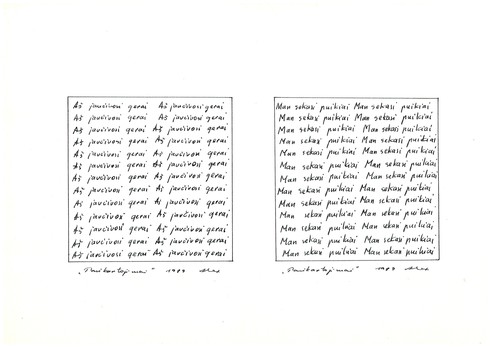 Aš jaučiuosi gerai Aš jaučiuosi gerai
Aš jaučiuosi gerai Aš jaučiuosi gerai
Aš jaučiuosi gerai Aš jaučiuosi gerai
Aš jaučiuosi gerai Aš jaučiuosi gerai
Aš jaučiuosi gerai Aš jaučiuosi gerai
Aš jaučiuosi gerai Aš jaučiuosi gerai
Aš jaučiuosi gerai Aš jaučiuosi gerai
Aš jaučiuosi gerai Aš jaučiuosi gerai
Aš jaučiuosi gerai Aš jaučiuosi gerai
Aš jaučiuosi gerai Aš jaučiuosi gerai
Aš jaučiuosi gerai Aš jaučiuosi gerai
Aš jaučiuosi gerai Aš jaučiuosi gerai
Aš jaučiuosi gerai Aš jaučiuosi gerai
Man sekasi puikiai Man sekasi puikiai
Man sekasi puikiai Man sekasi puikiai
Man sekasi puikiai Man sekasi puikiai
Man sekasi puikiai Man sekasi puikiai
Man sekasi puikiai Man sekasi puikiai
Man sekasi puikiai Man sekasi puikiai
Man sekasi puikiai Man sekasi puikiai
Man sekasi puikiai Man sekasi puikiai
Man sekasi puikiai Man sekasi puikiai
Man sekasi puikiai Man sekasi puikiai
Man sekasi puikiai Man sekasi puikiai
Man sekasi puikiai Man sekasi puikiai
Man sekasi puikiai Man sekasi puikiai